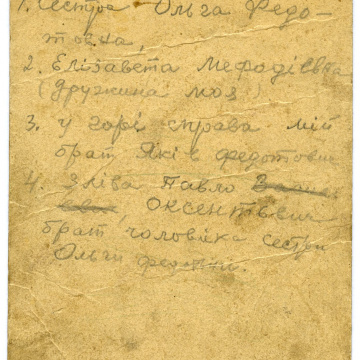 1. Сестра Ольга Федо-
товна,
2. Елізавета Мефодіївна
(дружина моя)
3. у горі справа мій
брат Які в Федотович
4. Зліва Павло
Оксентьевич
брат чоловіка сестри
Ольги